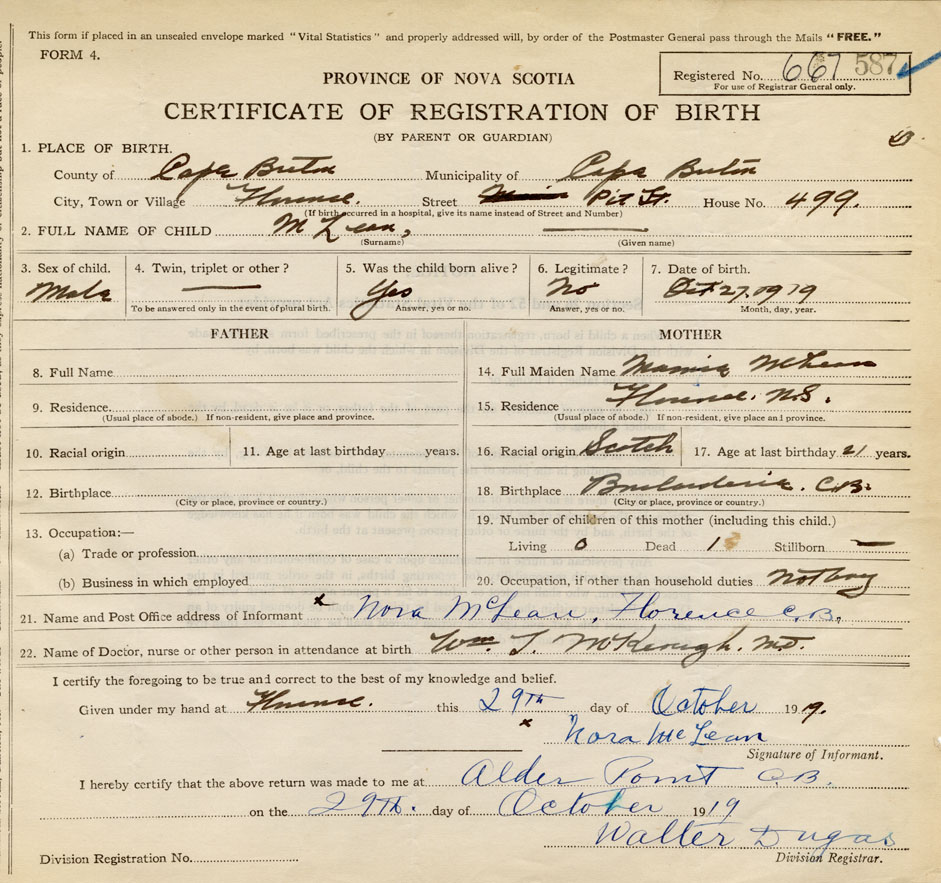 This form if placed in an unsealed envelope marked "Vital Statistics" and properly addressed will, by order of the Postmaster General pass through the Mails "FREE."
FORM 4.
Registered No. 667 587
For use of Registrar General only.
PROVINCE OF NOVA SCOTIA
CERTIFICATE OF REGISTRATION OF BIRTH
(BY PARENT OR GUARDIAN)
1. PLACE OF BIRTH.
County of Cape Breton Municipality of Cape Breton
City, Town or Village Florence. Street Pit St. House No. 499.
(If birth occurred in a hospital, give its name instead of Street and Number)
2. FULL NAME OF CHILD McLean,
(Surname) (Given name)
3. Sex of child. 4. Twin, triplet or other? 5. Was the child born alive? 6. Legitimate? 7. Date of birth.
Male — Yes No Oct 27, 1919
To be answered only in the event of plural birth. Answer, yes or no. Answer, yes or no. Month, day, year.
FATHER MOTHER
8. Full Name 14. Full Maiden Name Mamie McLean
9. Residence 15. Residence Florence. N.S.
(Usual place of abode.) If non-resident, give place and province. (Usual place of abode.) If non-resident, give place and province.
10. Racial origin 11. Age at last birthday years. 16. Racial origin Scotch 17. Age at last birthday 21 years.
12. Birthplace 18. Birthplace Boularderie. C.B.
(City or place, province or country.) (City or place, province or country.)
13. Occupation:— 19. Number of children of this mother (including this child.)
(a) Trade or profession Living 0 Dead 1 Stillborn —
(b) Business in which employed 20. Occupation, if other than household duties
21. Name and Post Office address of Informant x Nora McLean, Florence C.B.
22. Name of Doctor, nurse or other person in attendance at birth Wm. J. McKeough. M.D.
I certify the foregoing to be true and correct to the best of my knowledge and belief.
Given under my hand at Florence. this 29th day of October 1919.
x Nora McLean
Signature of Informant.
I hereby certify that the above return was made to me at Alder Point C.B.
on the 29th. day of October 1919
Walter Dugas
Division Registration No. Division Registrar.